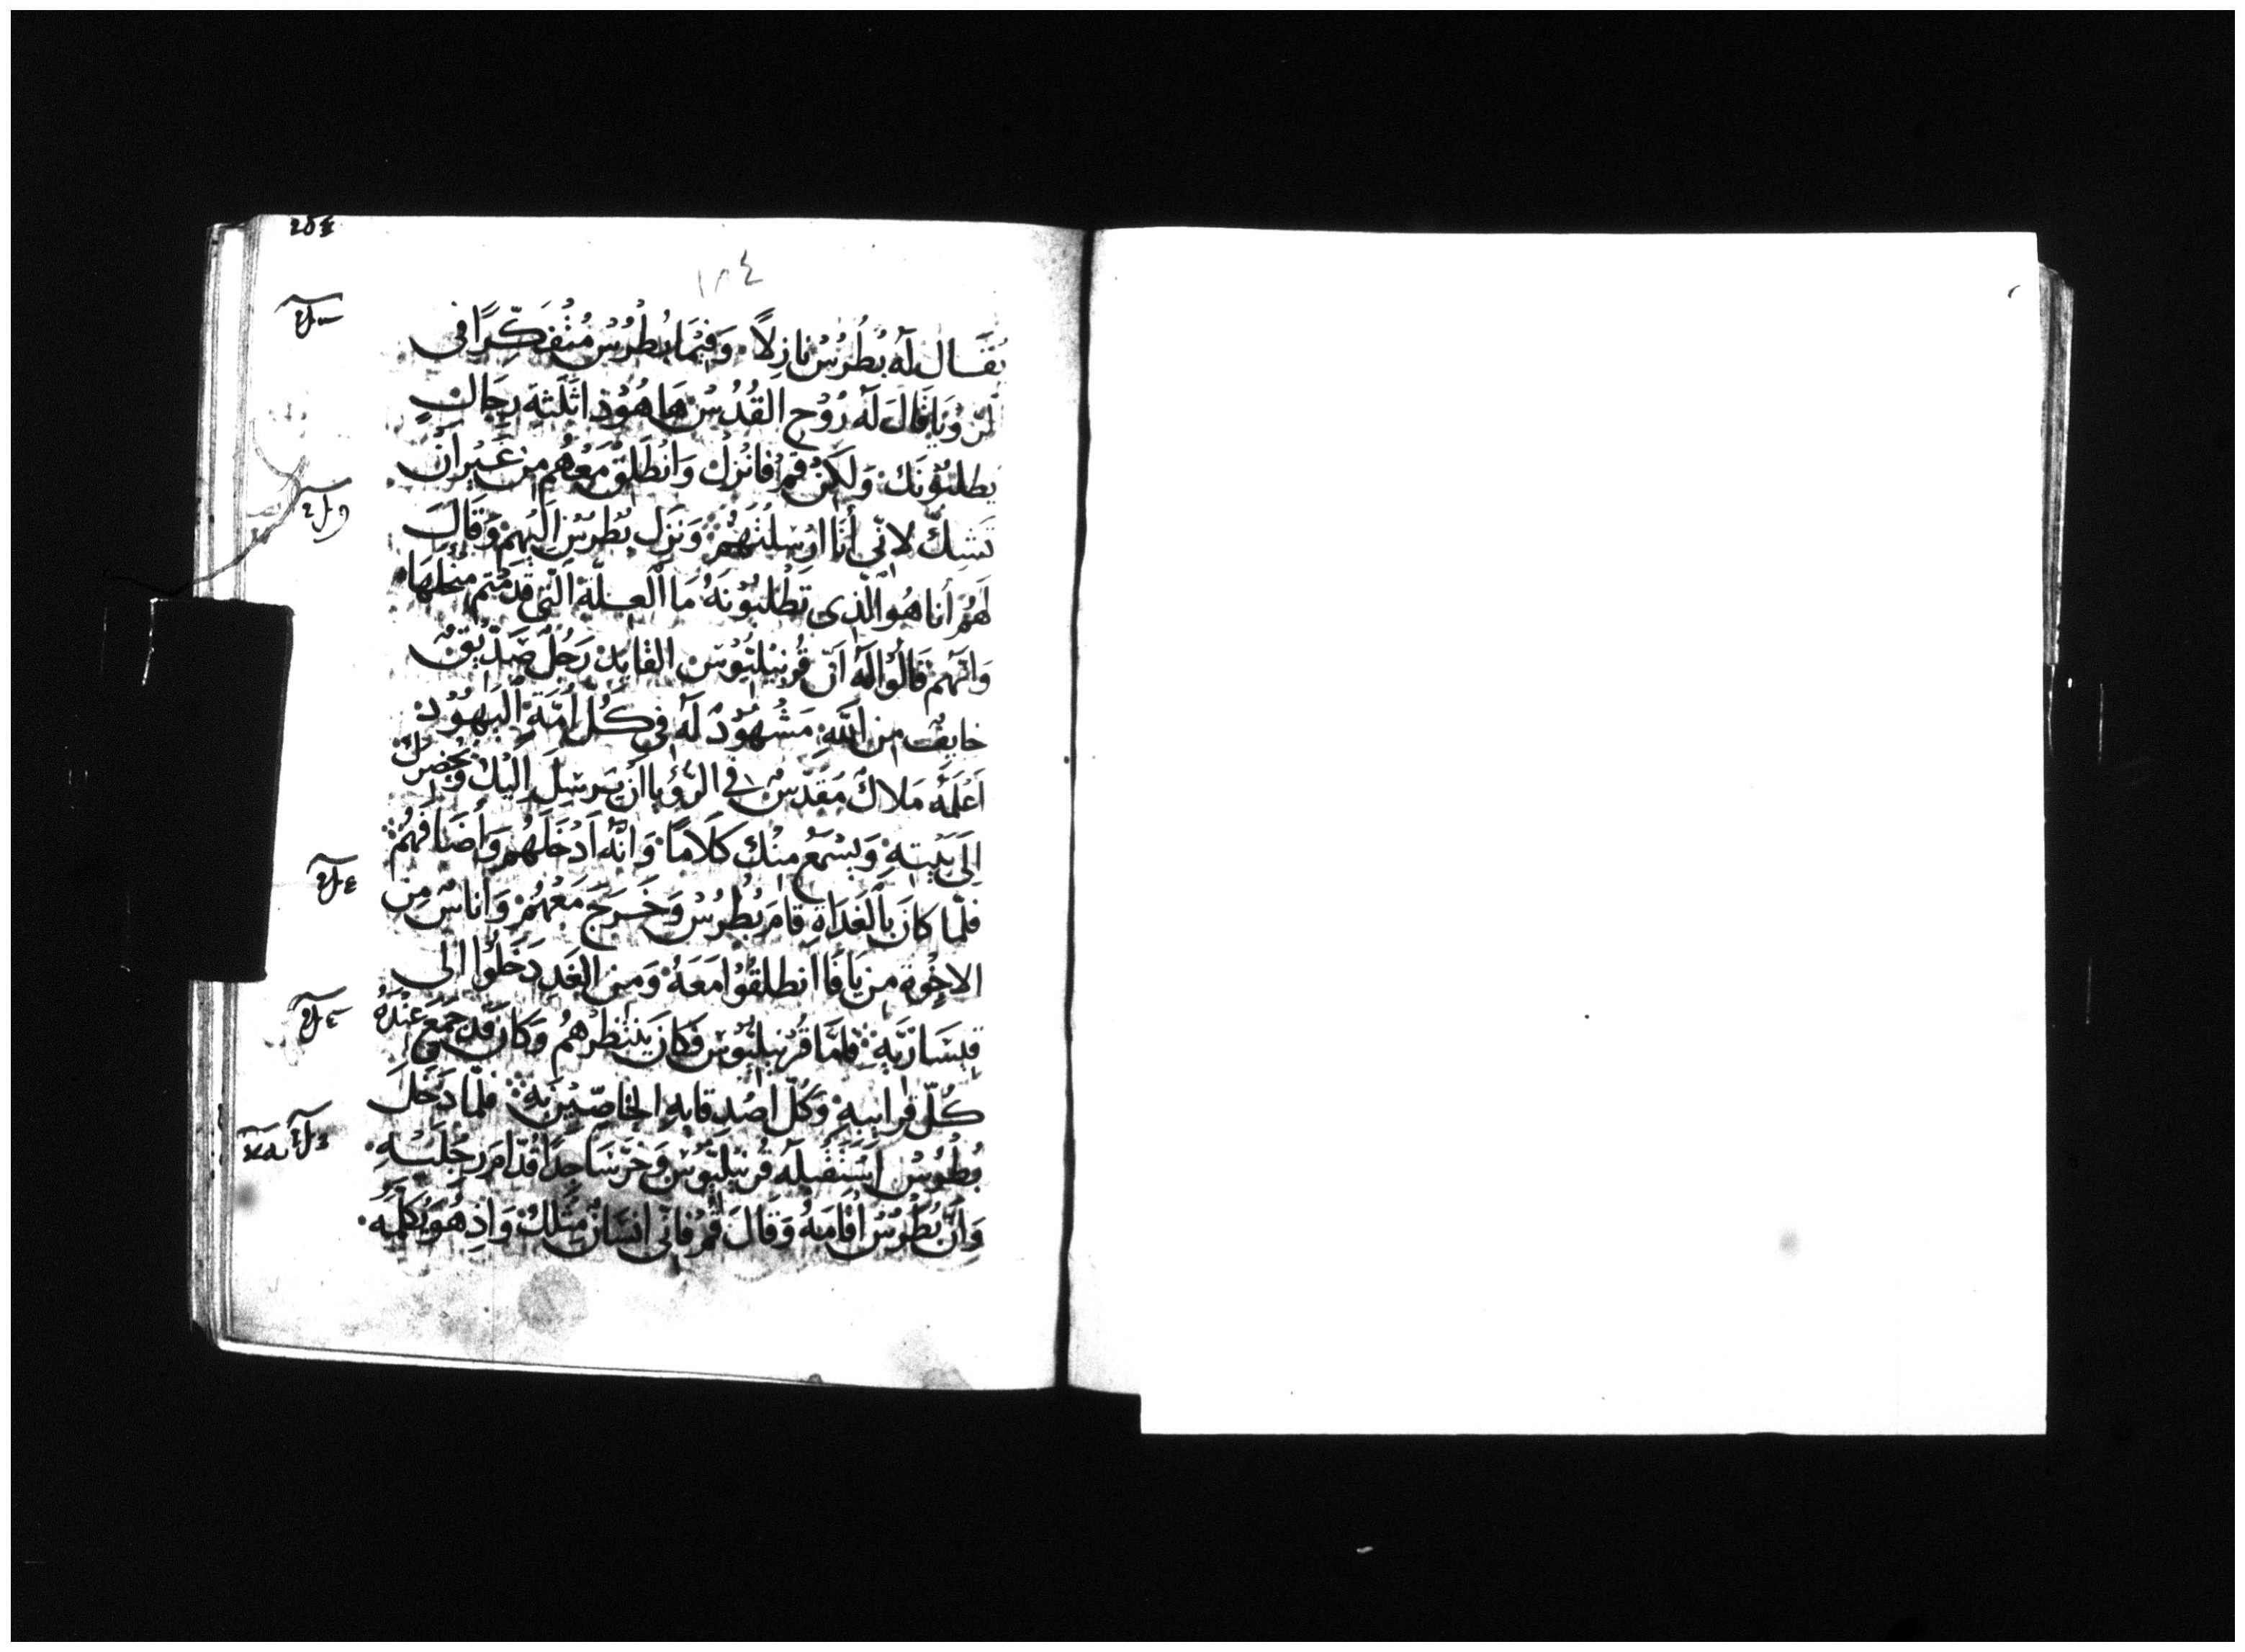 ١٨٤
يُقَال لَه بُطْرُسْ نازِلاً ۰ وَفيْمَا بُطْرُسْ مُتْفَكِّرًا فى
الرُويَا قَالَ لَه رُوْح القُدُسْ هَا هُوْذا ثَلثة رِجَالٍ
يَطلبُوْنَك وَلَكِنْ قُمْ فَانْزِلْ وَانْطَلِقْ مَعْهُم مِن غَيْر اَنْ
تَشكّ لانّي أنَا ارْسلتُهُمْ وَنَزَل بُطْرُسْ اِلَيْهِمْ وَقَالَ
لَهُمْ أنا هُو الّذى تَطْلبُوْنَهُ مَا العِلّة الّتي قدمتم مِنْ اَجْلِهَا
وَانّهم قَالُوْا لَه اَنّ قُرنِيْلِيُوْس القايدْ رَجُلْ صَدّيقْ
خايفْ مِن اللّهِ مَشْهُوْدٌ لَه في كُلّ اُمّةِ اليَهُوْدِ
اَعْلَمَه مَلَاكْ مُقَدّسْ في الرُؤيا اَنْ يَرْسِلَ اِلَيْكْ وَيُحْضِرَكْ
اِلَى بَيْتِهِ وَيسْمَعْ مِنْكَ كَلَامًا وَانّهُ اَدْخَلَهُم وَأضَافَهُمْ
فَلمّا كَانَ بِالْغَدَاةِ قامَ بُطْرُسْ وَخَرَجَ مَعْهُمْ وَاناسْ مِن
الاخْوة مِن يَافَا انطلقُوْا مَعَهُ وَمِن الغَدِ دَخَلُوا الى
قيسَاريّةِ فَامَّا قُرنيلِيُوْس فَكَانَ يَنْتظِرُهُمْ وَكَانَ قَدْ جَمَعَ عِنْدَهُ
كُلّ قرايبهِ وَكُلّ اصْدِقايهِ الخاصّيْن بَه فَلمّا دَخَلَ
بُطْرُسْ اسْتَقْبلَه قُرنيْليُوْسْ وَخَرّ سَاجِدًا قُدّام رِجْلَيْهِ
وَاَنّ بُطْرُسْ أقَامَهُ وَقَالَ قُمْ فَانّى انسَانْ مِثْلكْ وَاِذ هُوَ يُكلّمُه